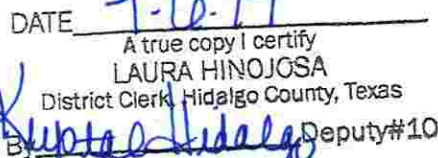 DATE
A true copy I certify
LAURA HINOJOSA
District Clerk, Hidalgo County, Texas
By Hidalgo Deputy#10